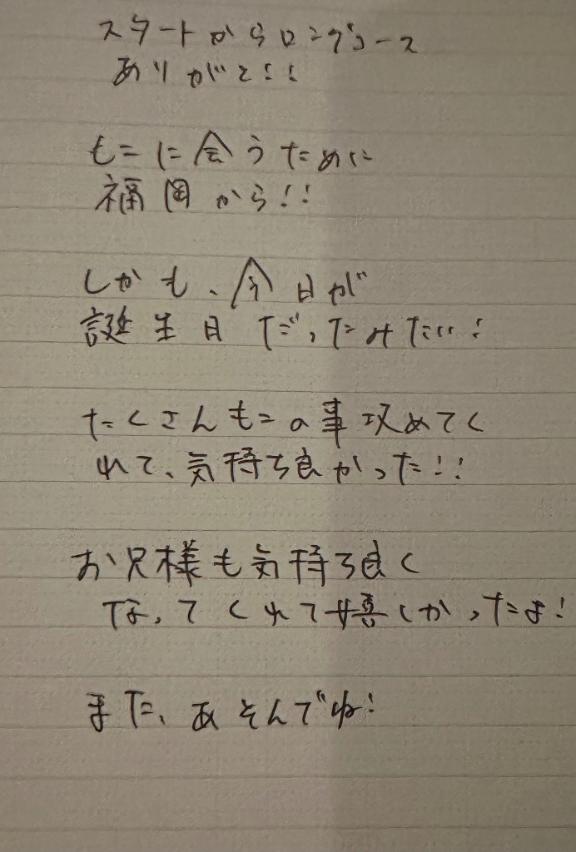 スタートからロングコース
ありがと!!
もこに会うために
福岡から!!
しかも、今日が
誕生日だったみたい!
たくさんもこの事攻めてく
れて、気持ち良かった!!
お兄様も気持ち良く
なってくれて嬉しかったよ!
また、あそんでね!